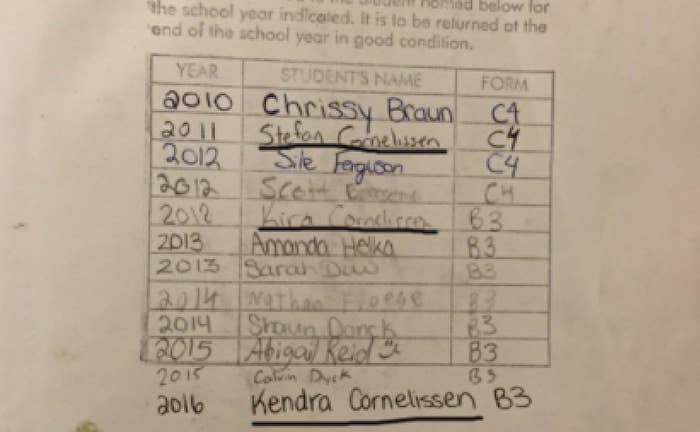 the Student named below for
the school year indicated. It is to be returned at the
end of the school year in good condition.
YEAR STUDENT'S NAME FORM
2010 Chrissy Braun C4
2011 Stefan Cornelissen C4
2012 Sile Ferguson C4
2012 Scott C4
2012 Kira Cornelissen B3
2013 Amanda Helka B3
2013 Sarah Daw B3
2014 Nathan Froese B3
2014 Shaun Danck B3
2015 Abigail Reid B3
2015 Calvin Dyck B3
2016 Kendra Cornelissen B3